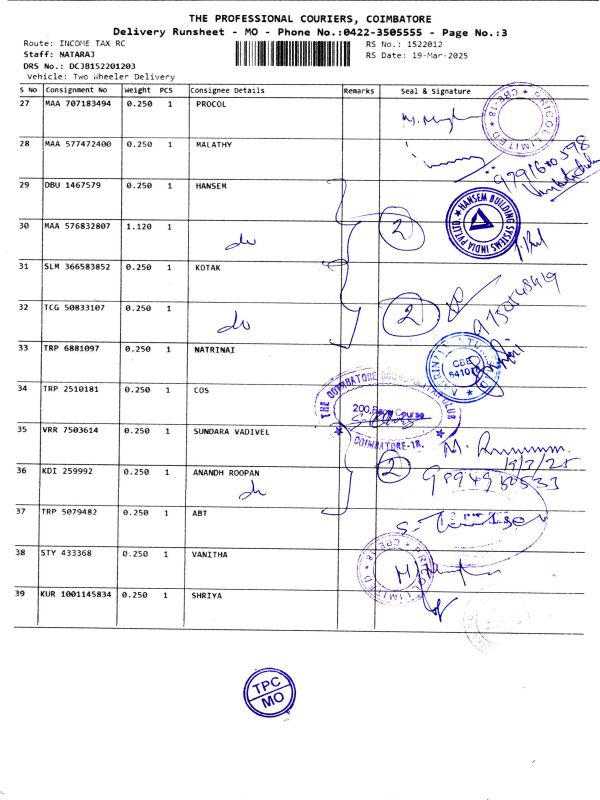 THE PROFESSIONAL COURIERS, COIMBATORE
Delivery Runsheet - MO - Phone No.:0422-3505555 - Page No.:3
Route: INCOME TAX RC
RS No.: 1522012
Staff: NATARAJ
RS Date: 19-Mar-2025
DRS No.: DCJB152201203
Vehicle: Two Wheeler Delivery
S No Consignment No Weight PCS Consignee Details Remarks Seal & Signature
27 MAA 707183494 0.250 1 PROCOL
28 MAA 577472400 0.250 1 MALATHY
9791600598
29 DBU 1467579 0.250 1 HANSEM
HANSEM BUILDING SYSTEMS INDIA PVT LTD.
30 MAA 576832807 1.120 1
do
2
31 SLM 366583852 0.250 1 KOTAK
32 TCG 50833107 0.250 1
do
2
33 TRP 6881097 0.250 1 NATRINAI
CBE
34 TRP 2510181 0.250 1 COS
200, Race Course
COIMBATORE-18.
35 VRR 7503614 0.250 1 SUNDARA VADIVEL
19/3/25
36 KDI 259992 0.250 1 ANANDH ROOPAN
do
2
37 TRP 5079482 0.250 1 ABT
38 STY 433368 0.250 1 VANITHA
39 KUR 1001145834 0.250 1 SHRIYA
TPC
MO